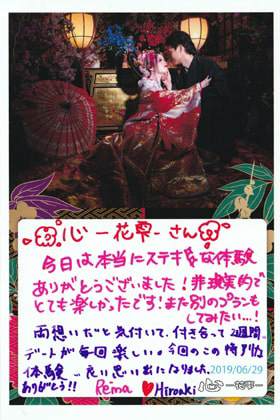 心 -花雫- さん
今日は本当にステキな体験
ありがとうございました！非現実的で
とても楽しかったです！また別のプランも
してみたい…！
両想いだと気付いて、付き合って2週間。
デートが毎回楽しい。今回のこの特別な
体験…良い思い出になりました。
2019/06/29
ありがとう！！ Rema ♥ Hiroaki 心 -花雫-